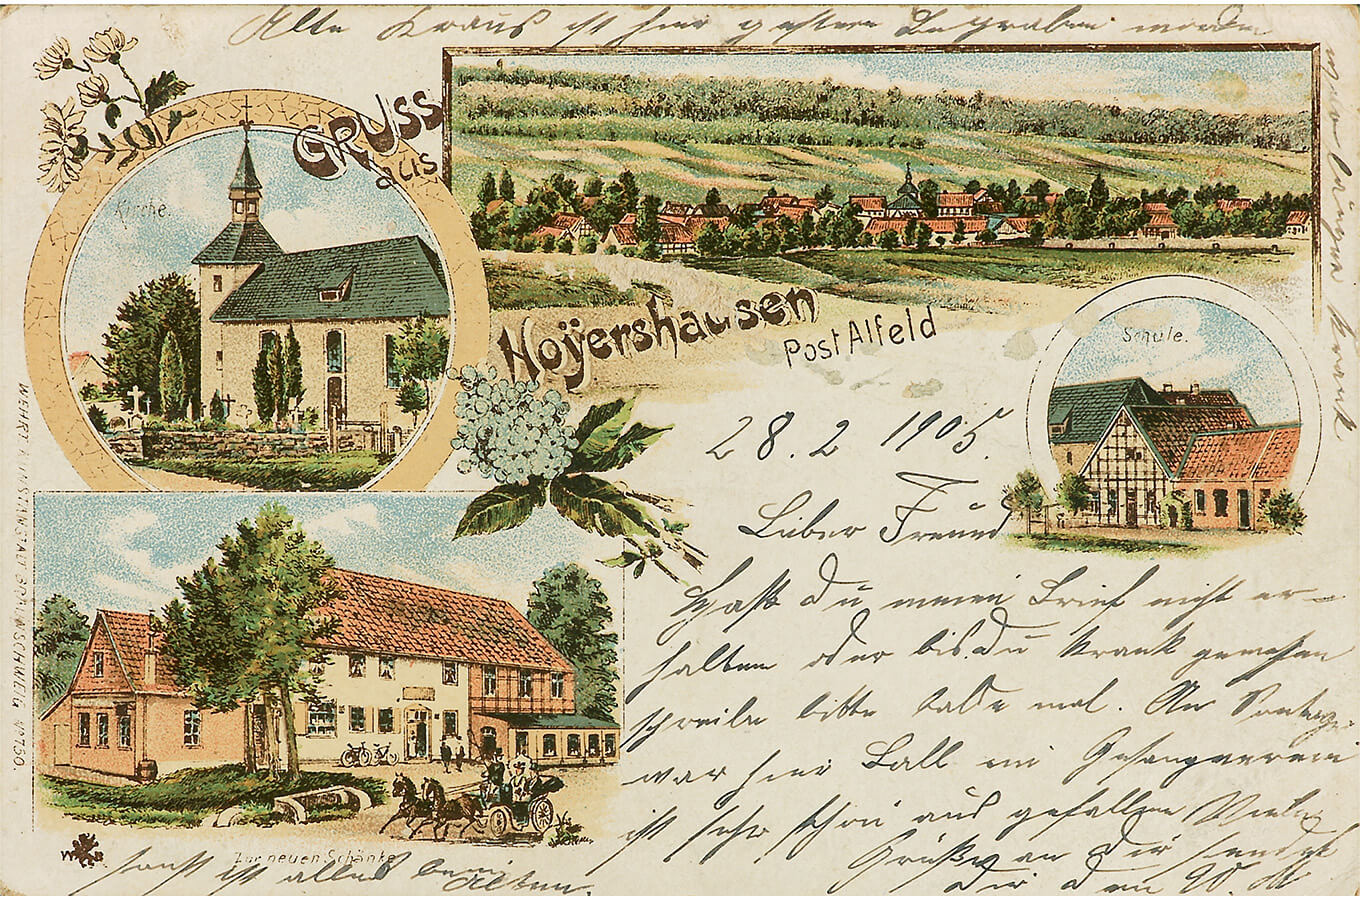 Alte Kraus ist hier gestern Begraben worden
war lange krank
GRUSS
aus
Kirche.
Hoyershausen
Post Alfeld
Schule.
28. 2 1905.
Lieber Freund
Hast du meinen Brief nicht er-
halten oder bis du krank gewesen
schreibe bitte balde mal. Am Sontag
war hier Ball im Gesangverein
ist sehr schön aus gefallen Viele
Grüße an dir sendet
Dir
Zur neuen Schänke
sonst ist alles beim Alten.
WEHRT KUNSTANSTALT BRAUNSCHWEIG No 750.